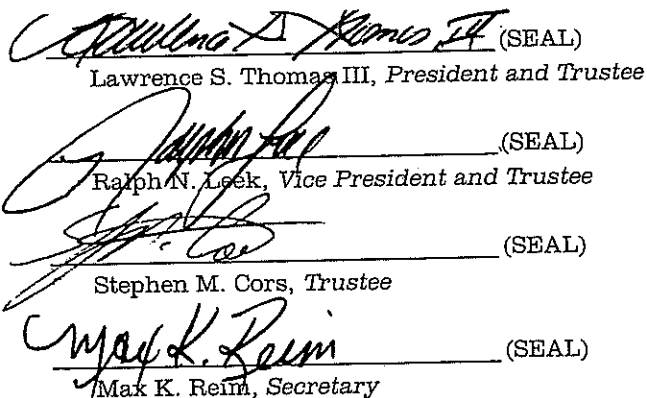 Lawrence S. Thomas III (SEAL)
Lawrence S. Thomas III, President and Trustee
(SEAL)
Ralph N. Leek, Vice President and Trustee
(SEAL)
Stephen M. Cors, Trustee
Max K. Reim (SEAL)
Max K. Reim, Secretary